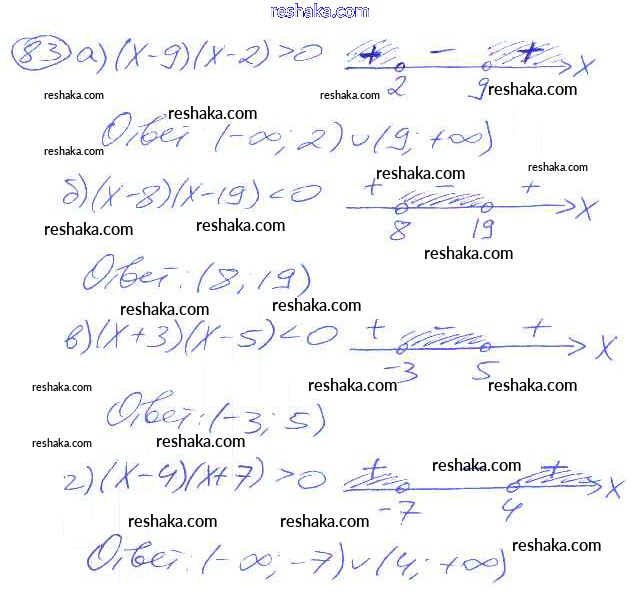 reshaka.com
83 а) (x-9)(x-2)>0 + - + x
2 9 reshaka.com
reshaka.com reshaka.com
reshaka.com
Ответ: (-∞; 2)∪(9; +∞)
reshaka.com reshaka.com
reshaka.com
б) (x-8)(x-19)<0 + - + x
8 19
reshaka.com reshaka.com
reshaka.com
Ответ: (8; 19)
reshaka.com reshaka.com
в) (x+3)(x-5)<0 + - + x
-3 5
reshaka.com reshaka.com reshaka.com
Ответ: (-3; 5)
reshaka.com reshaka.com
г) (x-4)(x+7)>0 + reshaka.com + x
-7 4
reshaka.com reshaka.com
reshaka.com
Ответ: (-∞; -7)∪(4; +∞)